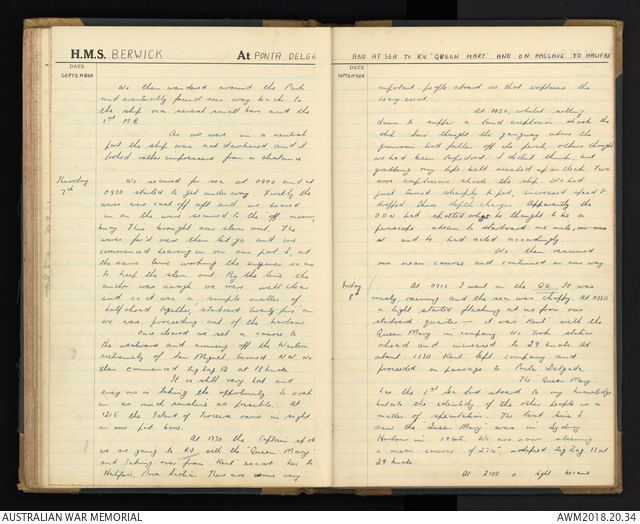 H.M.S. BERWICK At PONTA DELGA
DATE
SEPTEMBER
We then wandered around the Park
and eventually found our way back to
the ship via several small bars and the
1st M.B.
As we were in a neutral
port the ship was not darkened and it
looked rather impressive from a distance
Thursday
7th
We secured for sea at 0900 and at
0930 started to get under way. Firstly the
wires were cast off aft and we heaved
in on the wire secured to the off
buoy. This brought our stern out. The
wires for'd were then let go and we
commenced heaving in on our port, at
the same time working the engines so as
to keep the stern out. By the time the
anchor was aweigh we were well clear
and so it was a simple matter of
half ahead together, starboard twenty five and
we were proceeding out of the harbour
Once cleared we set a course to
the westward and rounding off the Western
extremity of San Miguel, turned N.W. We
then commenced Zig Zag 12 at 18 knots.
It is still very hot and
every one is taking the opportunity to soak
in as much sunshine as possible. At
1215 the Island of Terceira came in sight
on our port bow.
At 1730 the Captain spoke
we are going to RV with the "Queen Mary"
and taking over from 'Kent' escort her to
Halifax, Nova Scotia. There are some very
AND AT SEA TO RV 'QUEEN MARY' AND ON PASSAGE TO HALIFAX
DATE
SEPTEMBER
important people aboard so that explains the
heavy escort.
At 1930, whilst sitting
down to supper a loud explosion shook the
ship. Some thought the gangway above the
gunroom had fallen off its perch, others thought
we had been torpedoed. I didn't think, but
grabbing my life belt rushed up on deck. Two
more explosions shook the ship. We had
just turned sharply to port, increased speed &
dropped three depth charges. Apparently the
O.O.W had spotted what he thought to be a
periscope abeam to starboard one mile,
and so had acted accordingly.
We then resumed
our mean course and continued on our way.
Friday
8th
At 0715 I went on the QD. It was
misty, raining and the sea was choppy. At 0730
a light started flashing at us from our
starboard quarter - it was 'Kent' with the
Queen Mary in company. We took station
ahead and increased to 29 knots. At
about 1130 'Kent' left company and
proceeded on passage to Ponta Delgada.
The 'Queen Mary'
has the 1st Sea Lord aboard to my knowledge
but as to the identity of the other people is a
matter of speculation. The last time I
saw the 'Queen Mary' was in Sydney
Harbour in 1942. We are now steering
a mean course of 276°, modified Zig Zag 11 at
29 knots.
At 2100 a light became
AUSTRALIAN WAR MEMORIAL
AWM2018.20.34